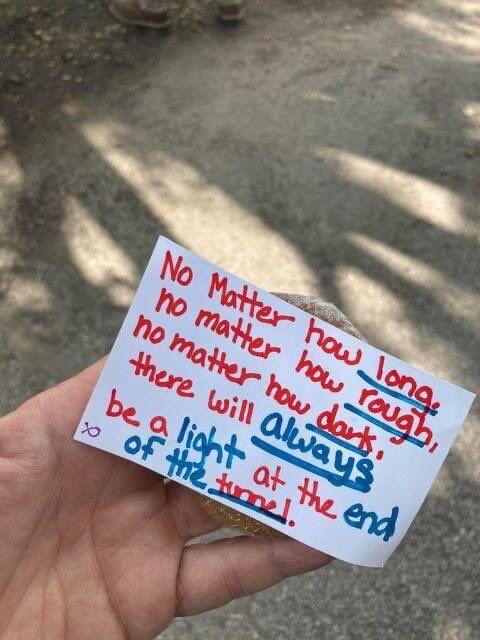 No Matter how long.
no matter how rough,
no matter how dark,
there will always
be a light at the end
of the tunnel.